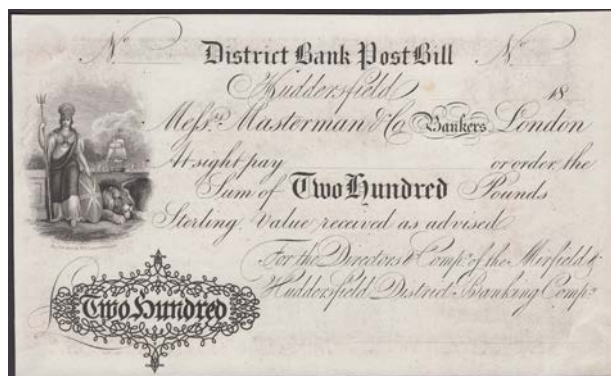 No District Bank Post Bill No
Huddersfield 18
Messrs. Masterman & Co Bankers London
At sight pay or order the
Sum of Two Hundred Pounds
Sterling, Value received as advised
For the Directors & Compy. of the Mirfield &
Huddersfield District Banking Compy.
£ Two Hundred